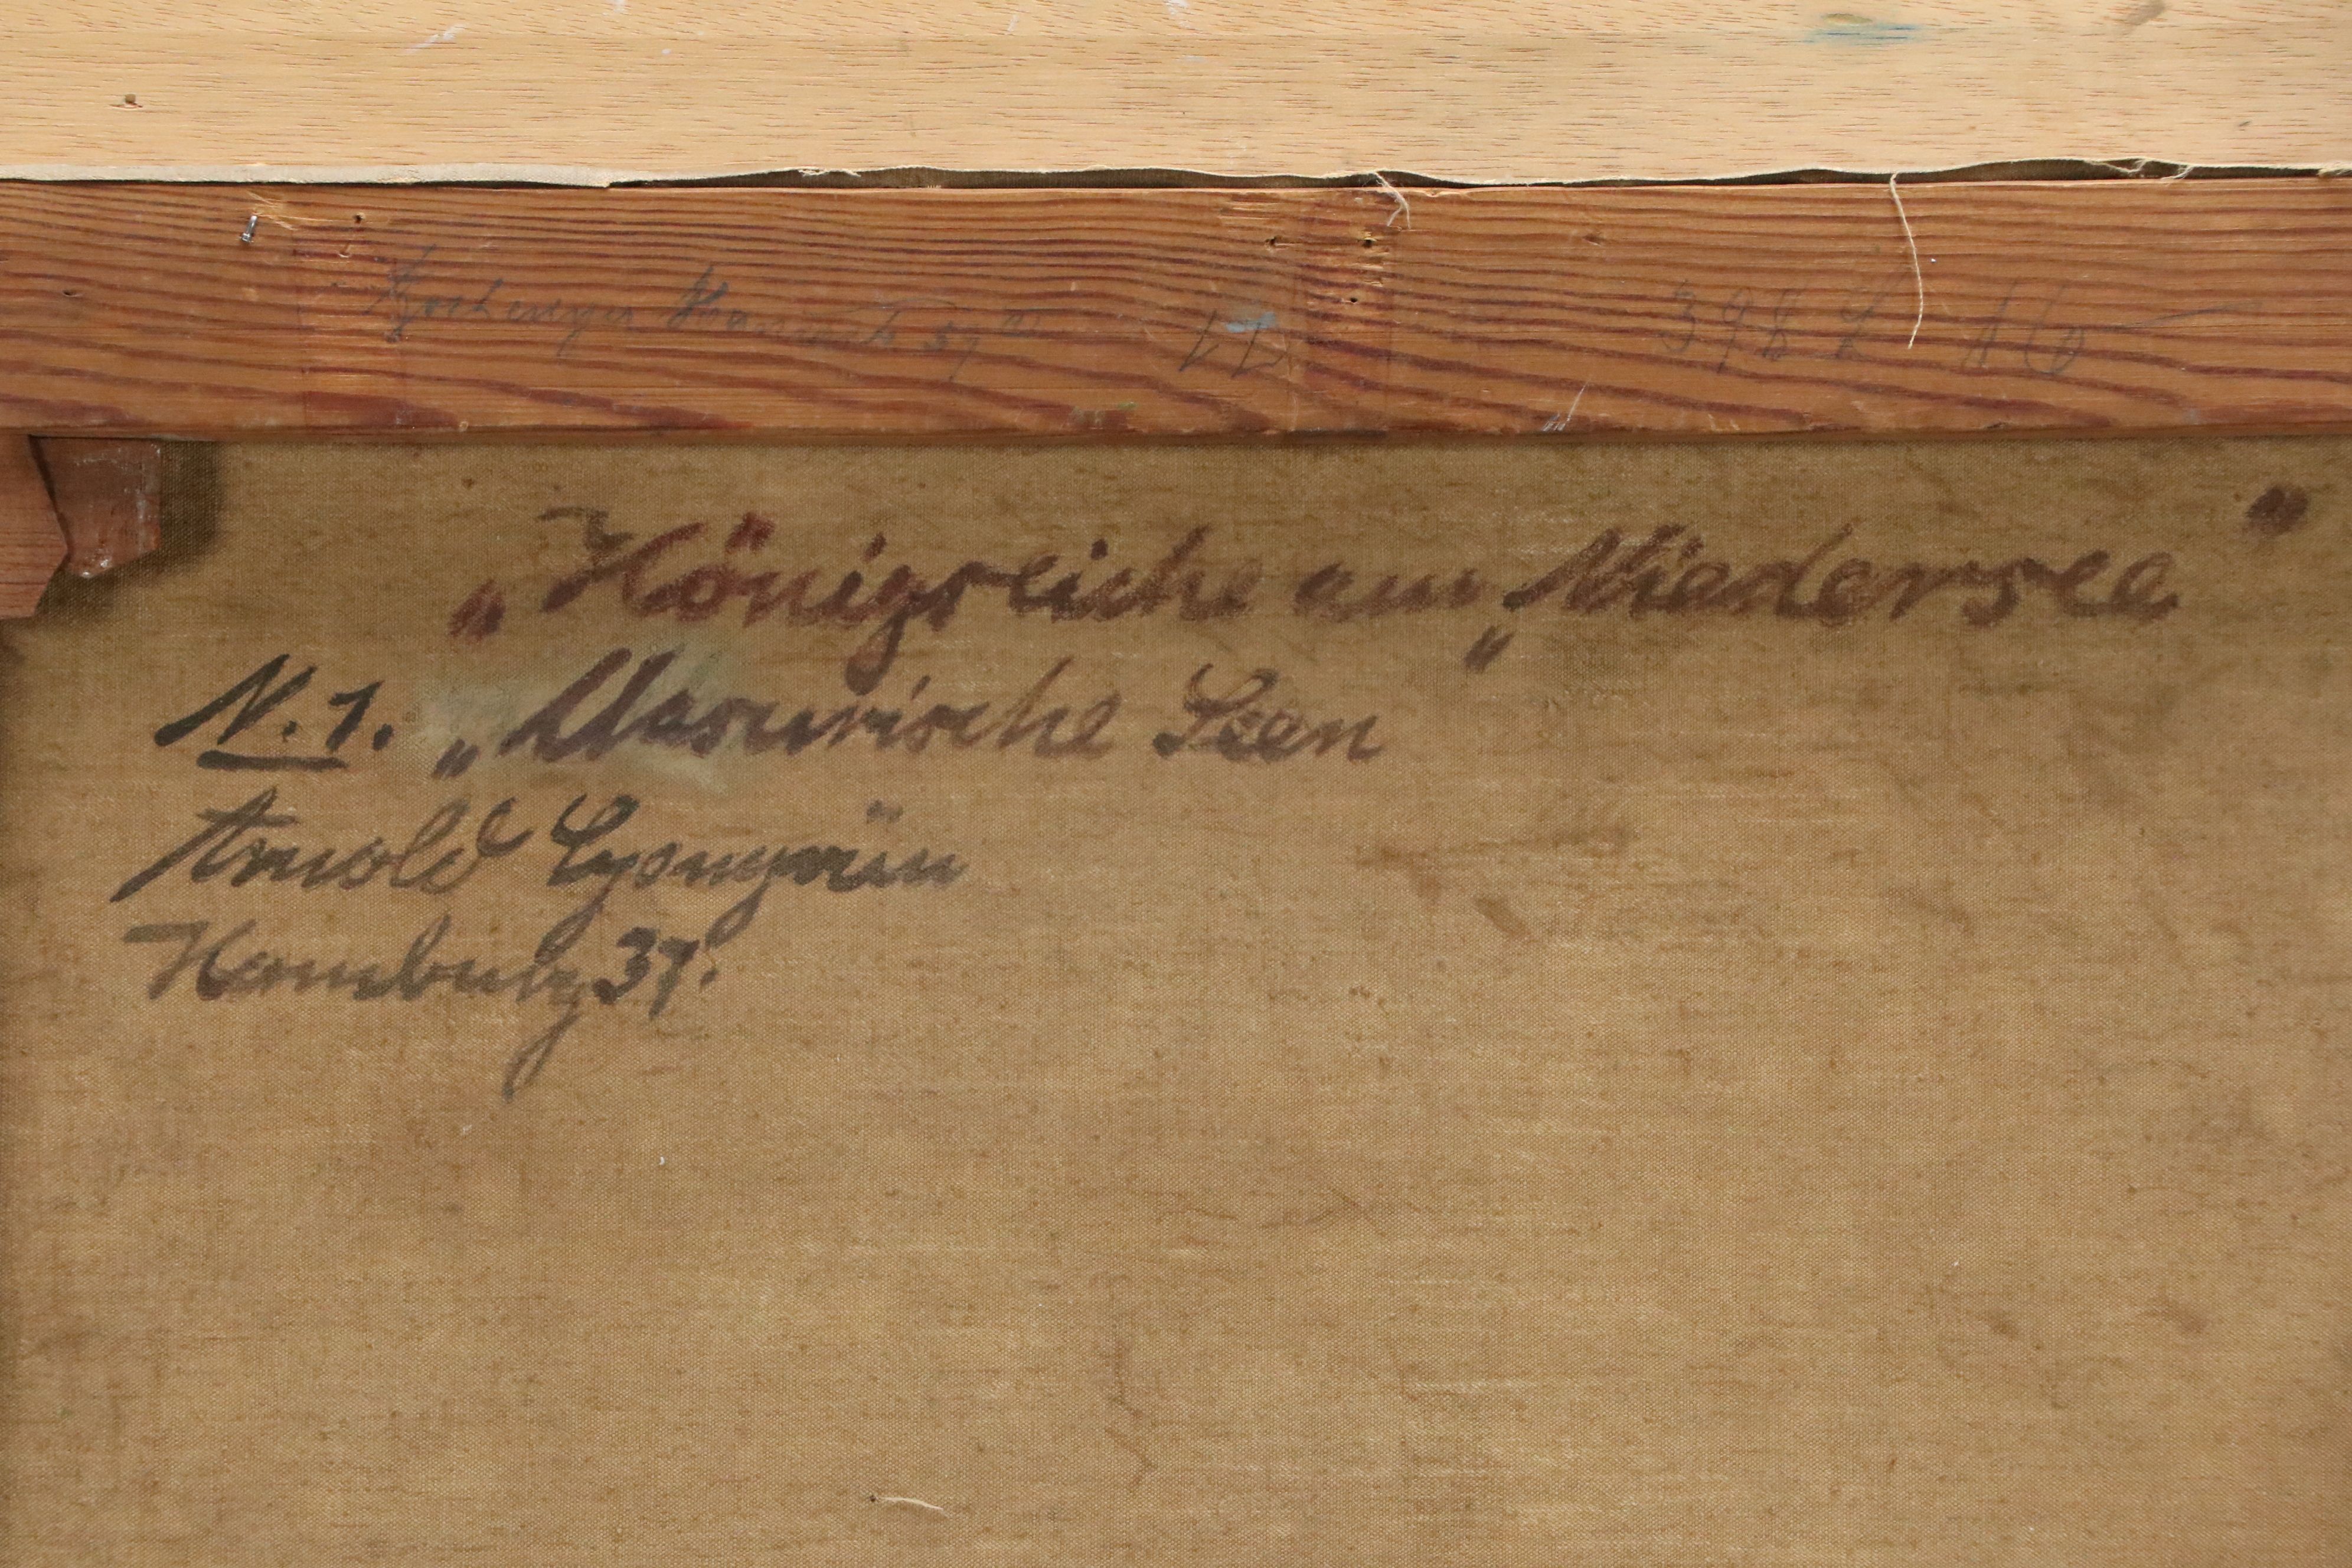 398
„Königreiche am „Niedersee"
N. 1. „Masurische Seen
Arnold Lyongrün
Hamburg 37.